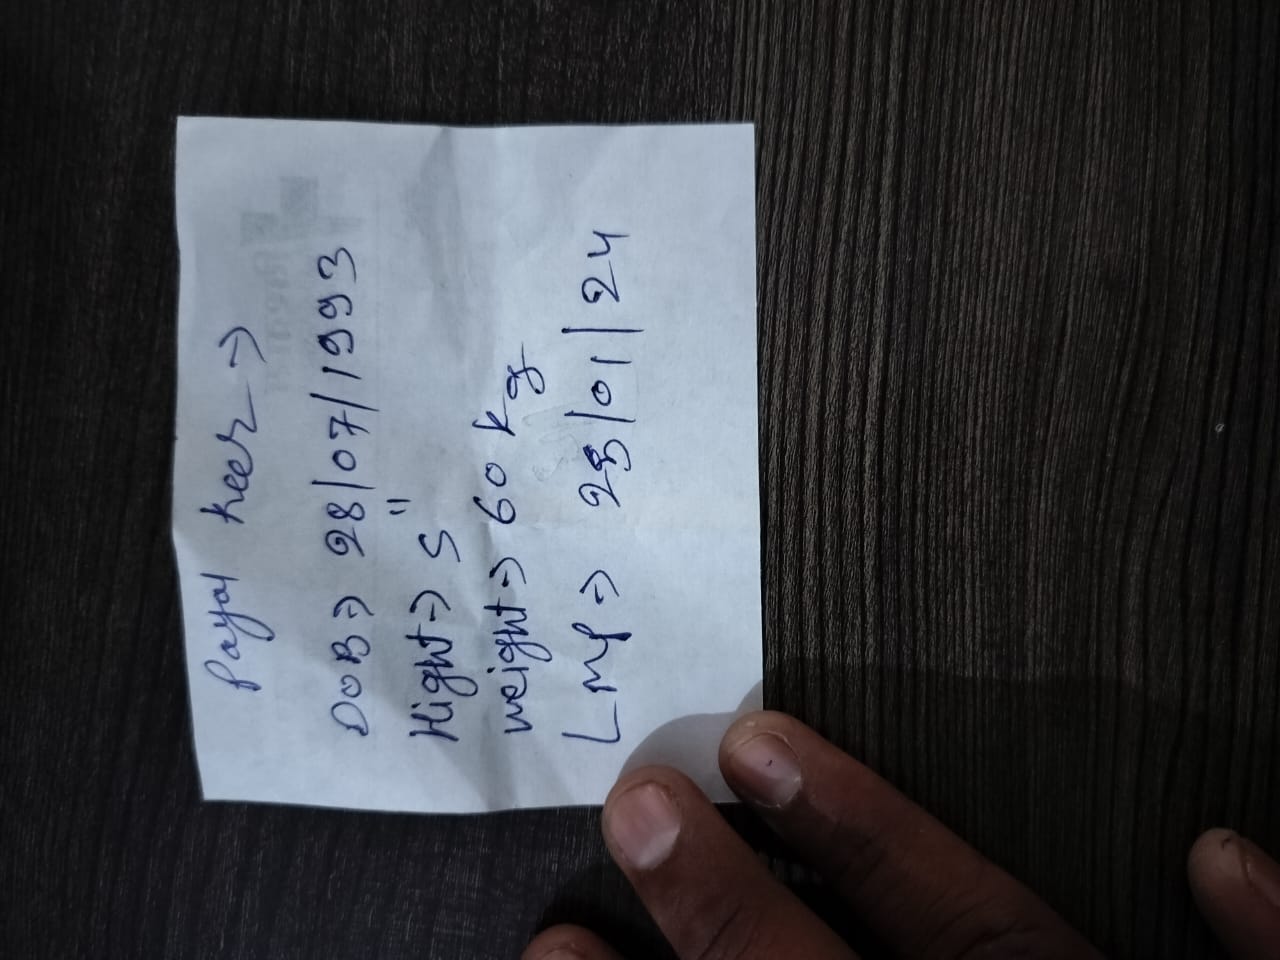 Payal keer →
DOB ⇒ 28/07/1993
Hight ⇒ 5"
weight ⇒ 60 kg
LMP ⇒ /01/24